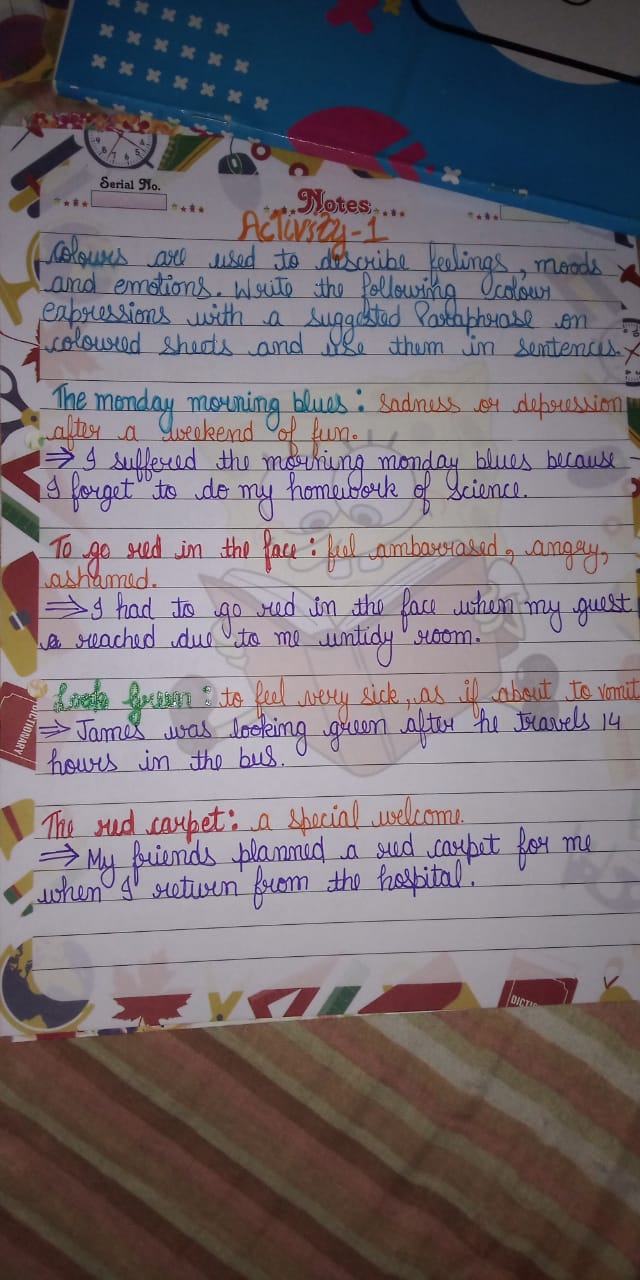 Serial No.
Notes
Activity-1
Colours are used to describe feelings, moods
and emotions. Write the following colour
expressions with a suggested Paraphrase on
coloured sheets and use them in sentences.
The monday morning blues: sadness or depression
after a weekend of fun.
⇒ I suffered the morning monday blues because
I forget to do my homework of science.
To go red in the face: feel ambarrased, angry,
ashamed.
⇒ I had to go red in the face when my guest
reached due to me untidy room.
Look Green: to feel very sick, as if about to vomit
⇒ James was looking green after he travels 14
hours in the bus.
The red carpet: a special welcome.
⇒ My friends planned a red carpet for me
when I return from the hospital.
DICTIONARY